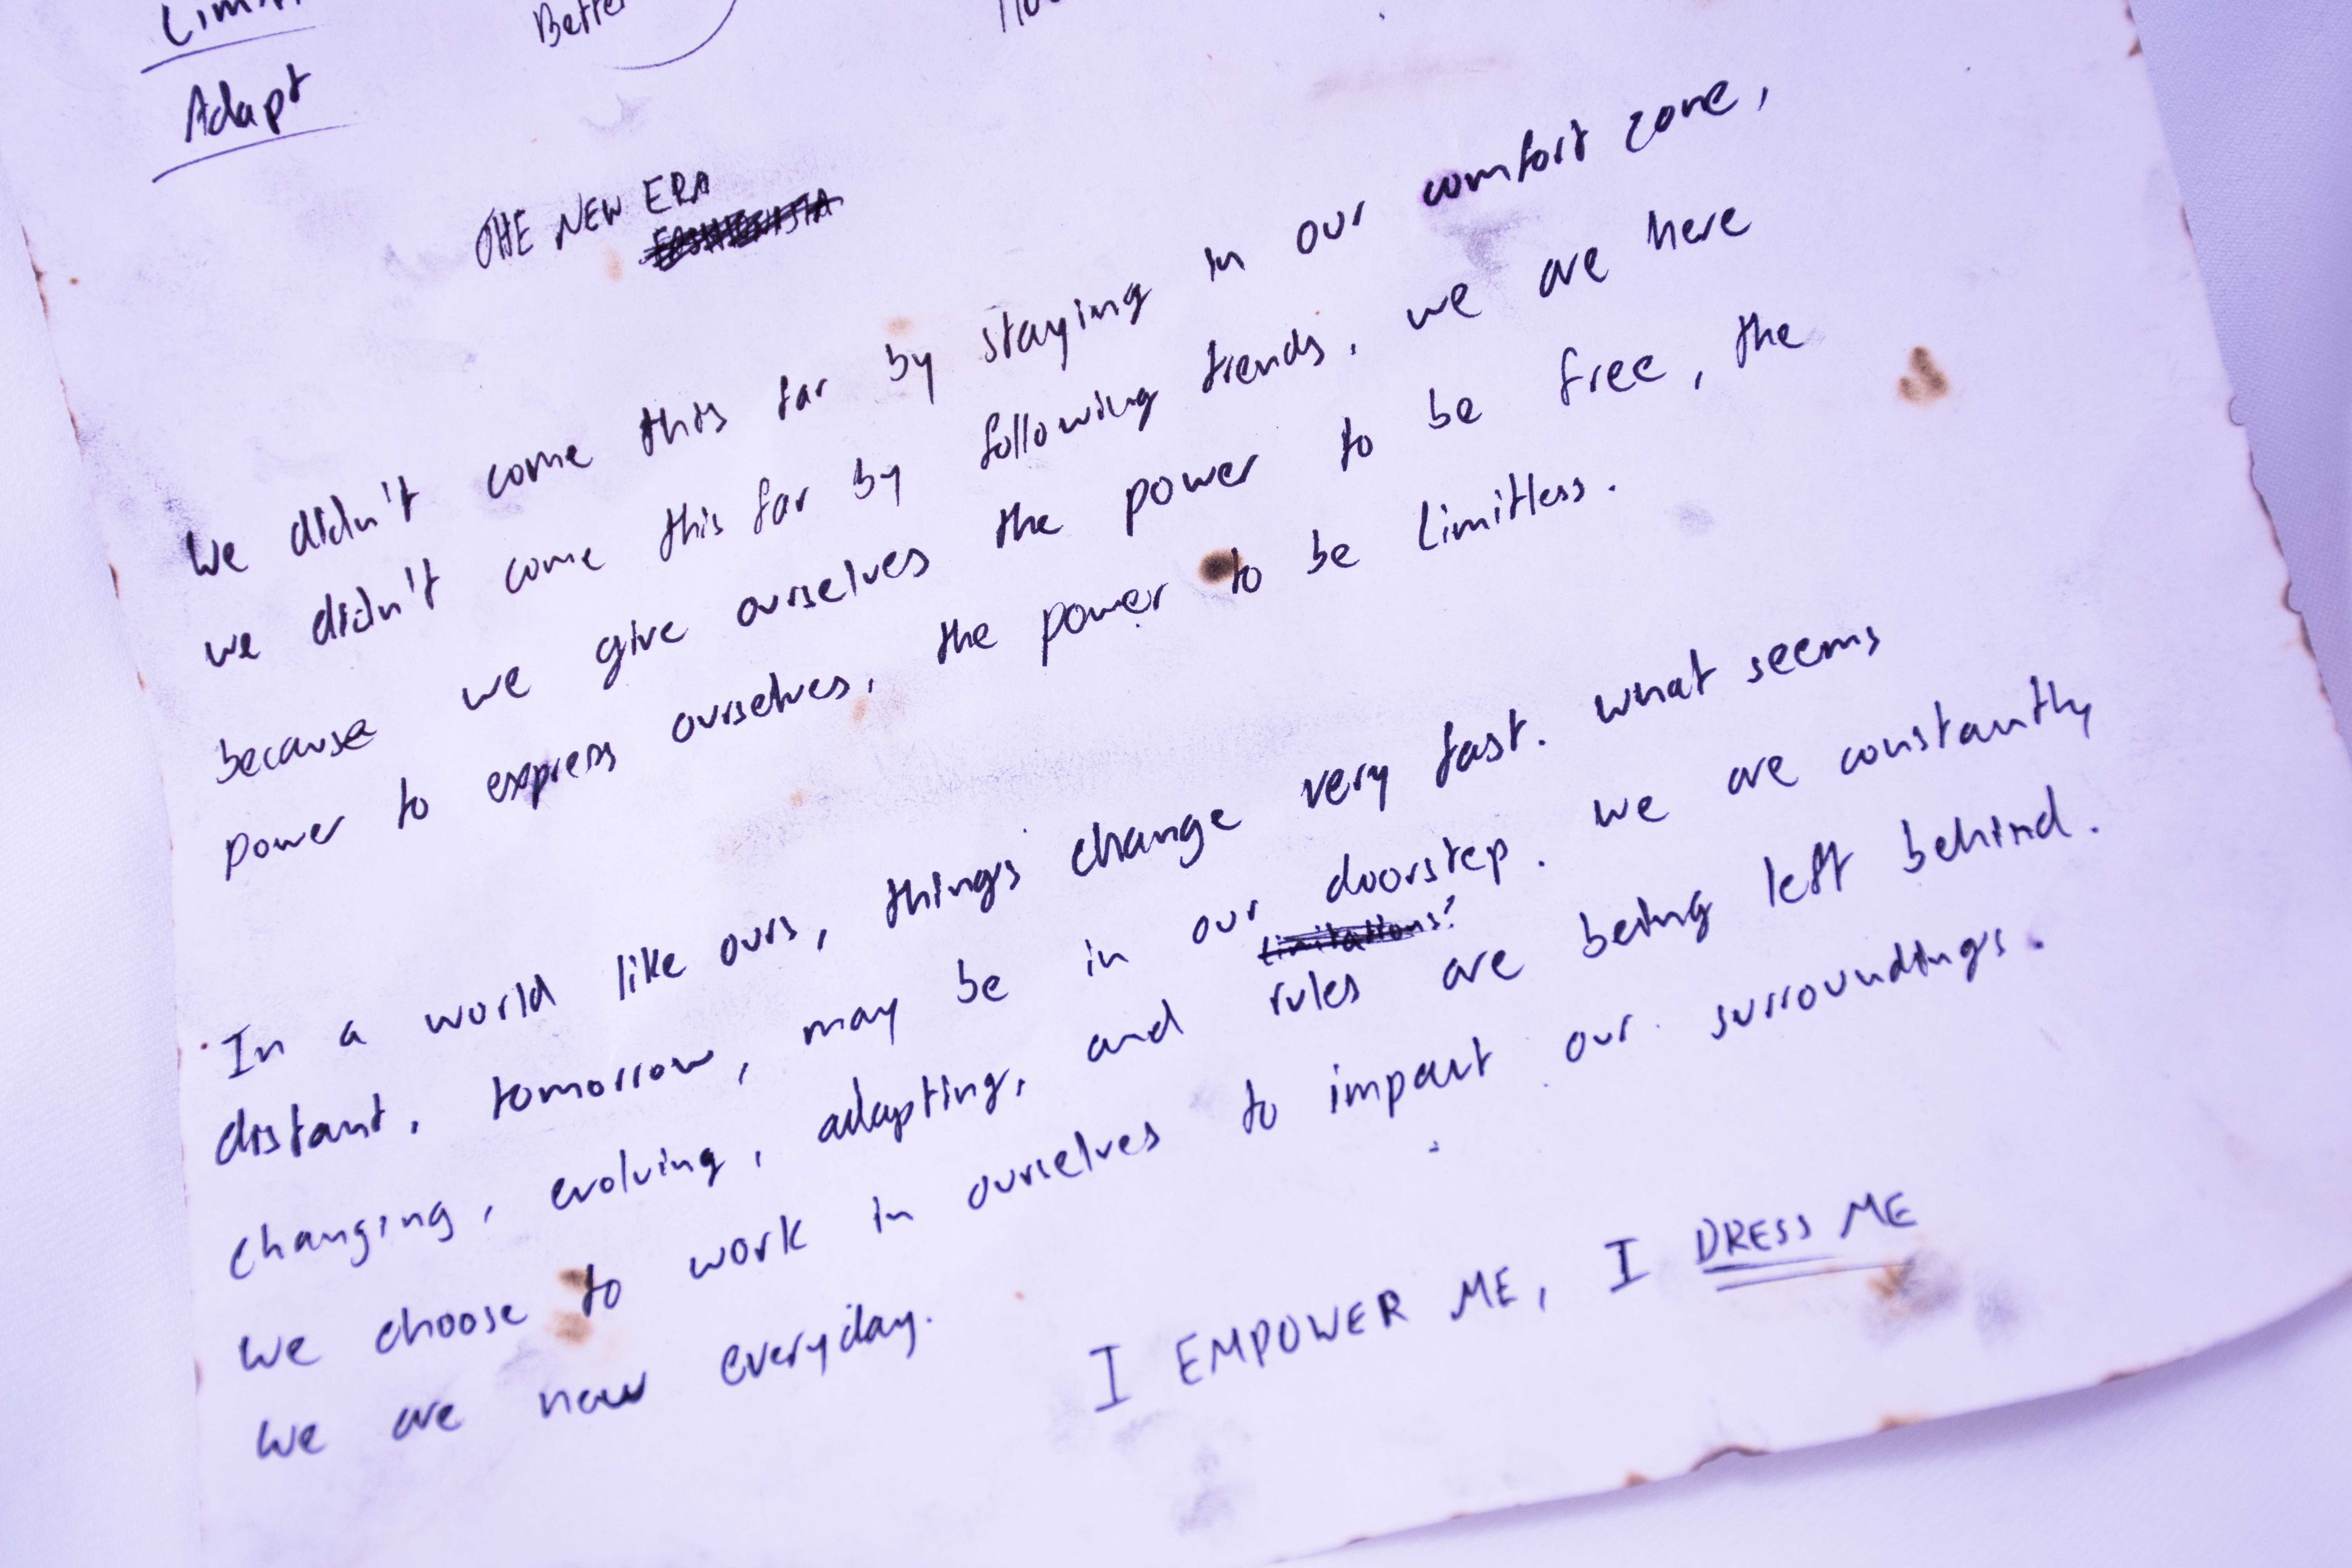 Adapt
THE NEW ERA
We didn't come this far by staying in our comfort zone,
we didn't come this far by following trends, we are here
because we give ourselves the power to be free, the
power to express ourselves, the power to be limitless.
In a world like ours, things change very fast. what seems
distant, tomorrow, may be in our doorstep. we are constantly
limitations?
changing, evolving, adapting, and rules are being left behind.
We choose to work in ourselves to impact our surroundings.
We are new everyday.
I EMPOWER ME, I DRESS ME